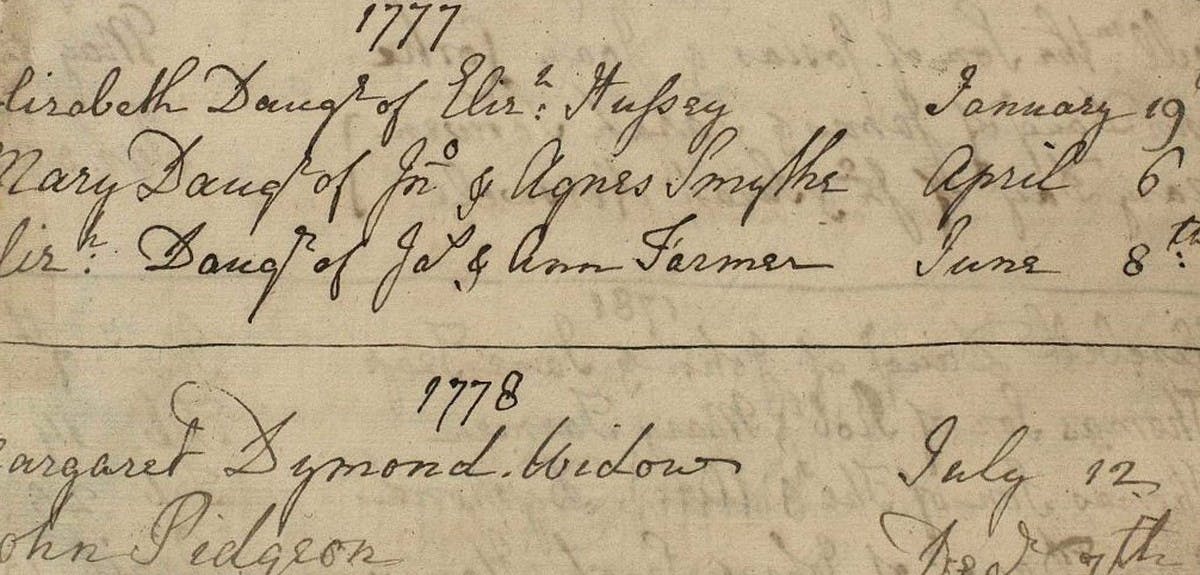 1777
lizabeth Daugr of Elizh: Hussey January 19
Mary Daugr of Jno & Agnes Smythe April 6
lizh: Daugr of Jos & Ann Farmer June 8th:
1778
argaret Dymond. Widow July 12
ohn Pidgeon 7th